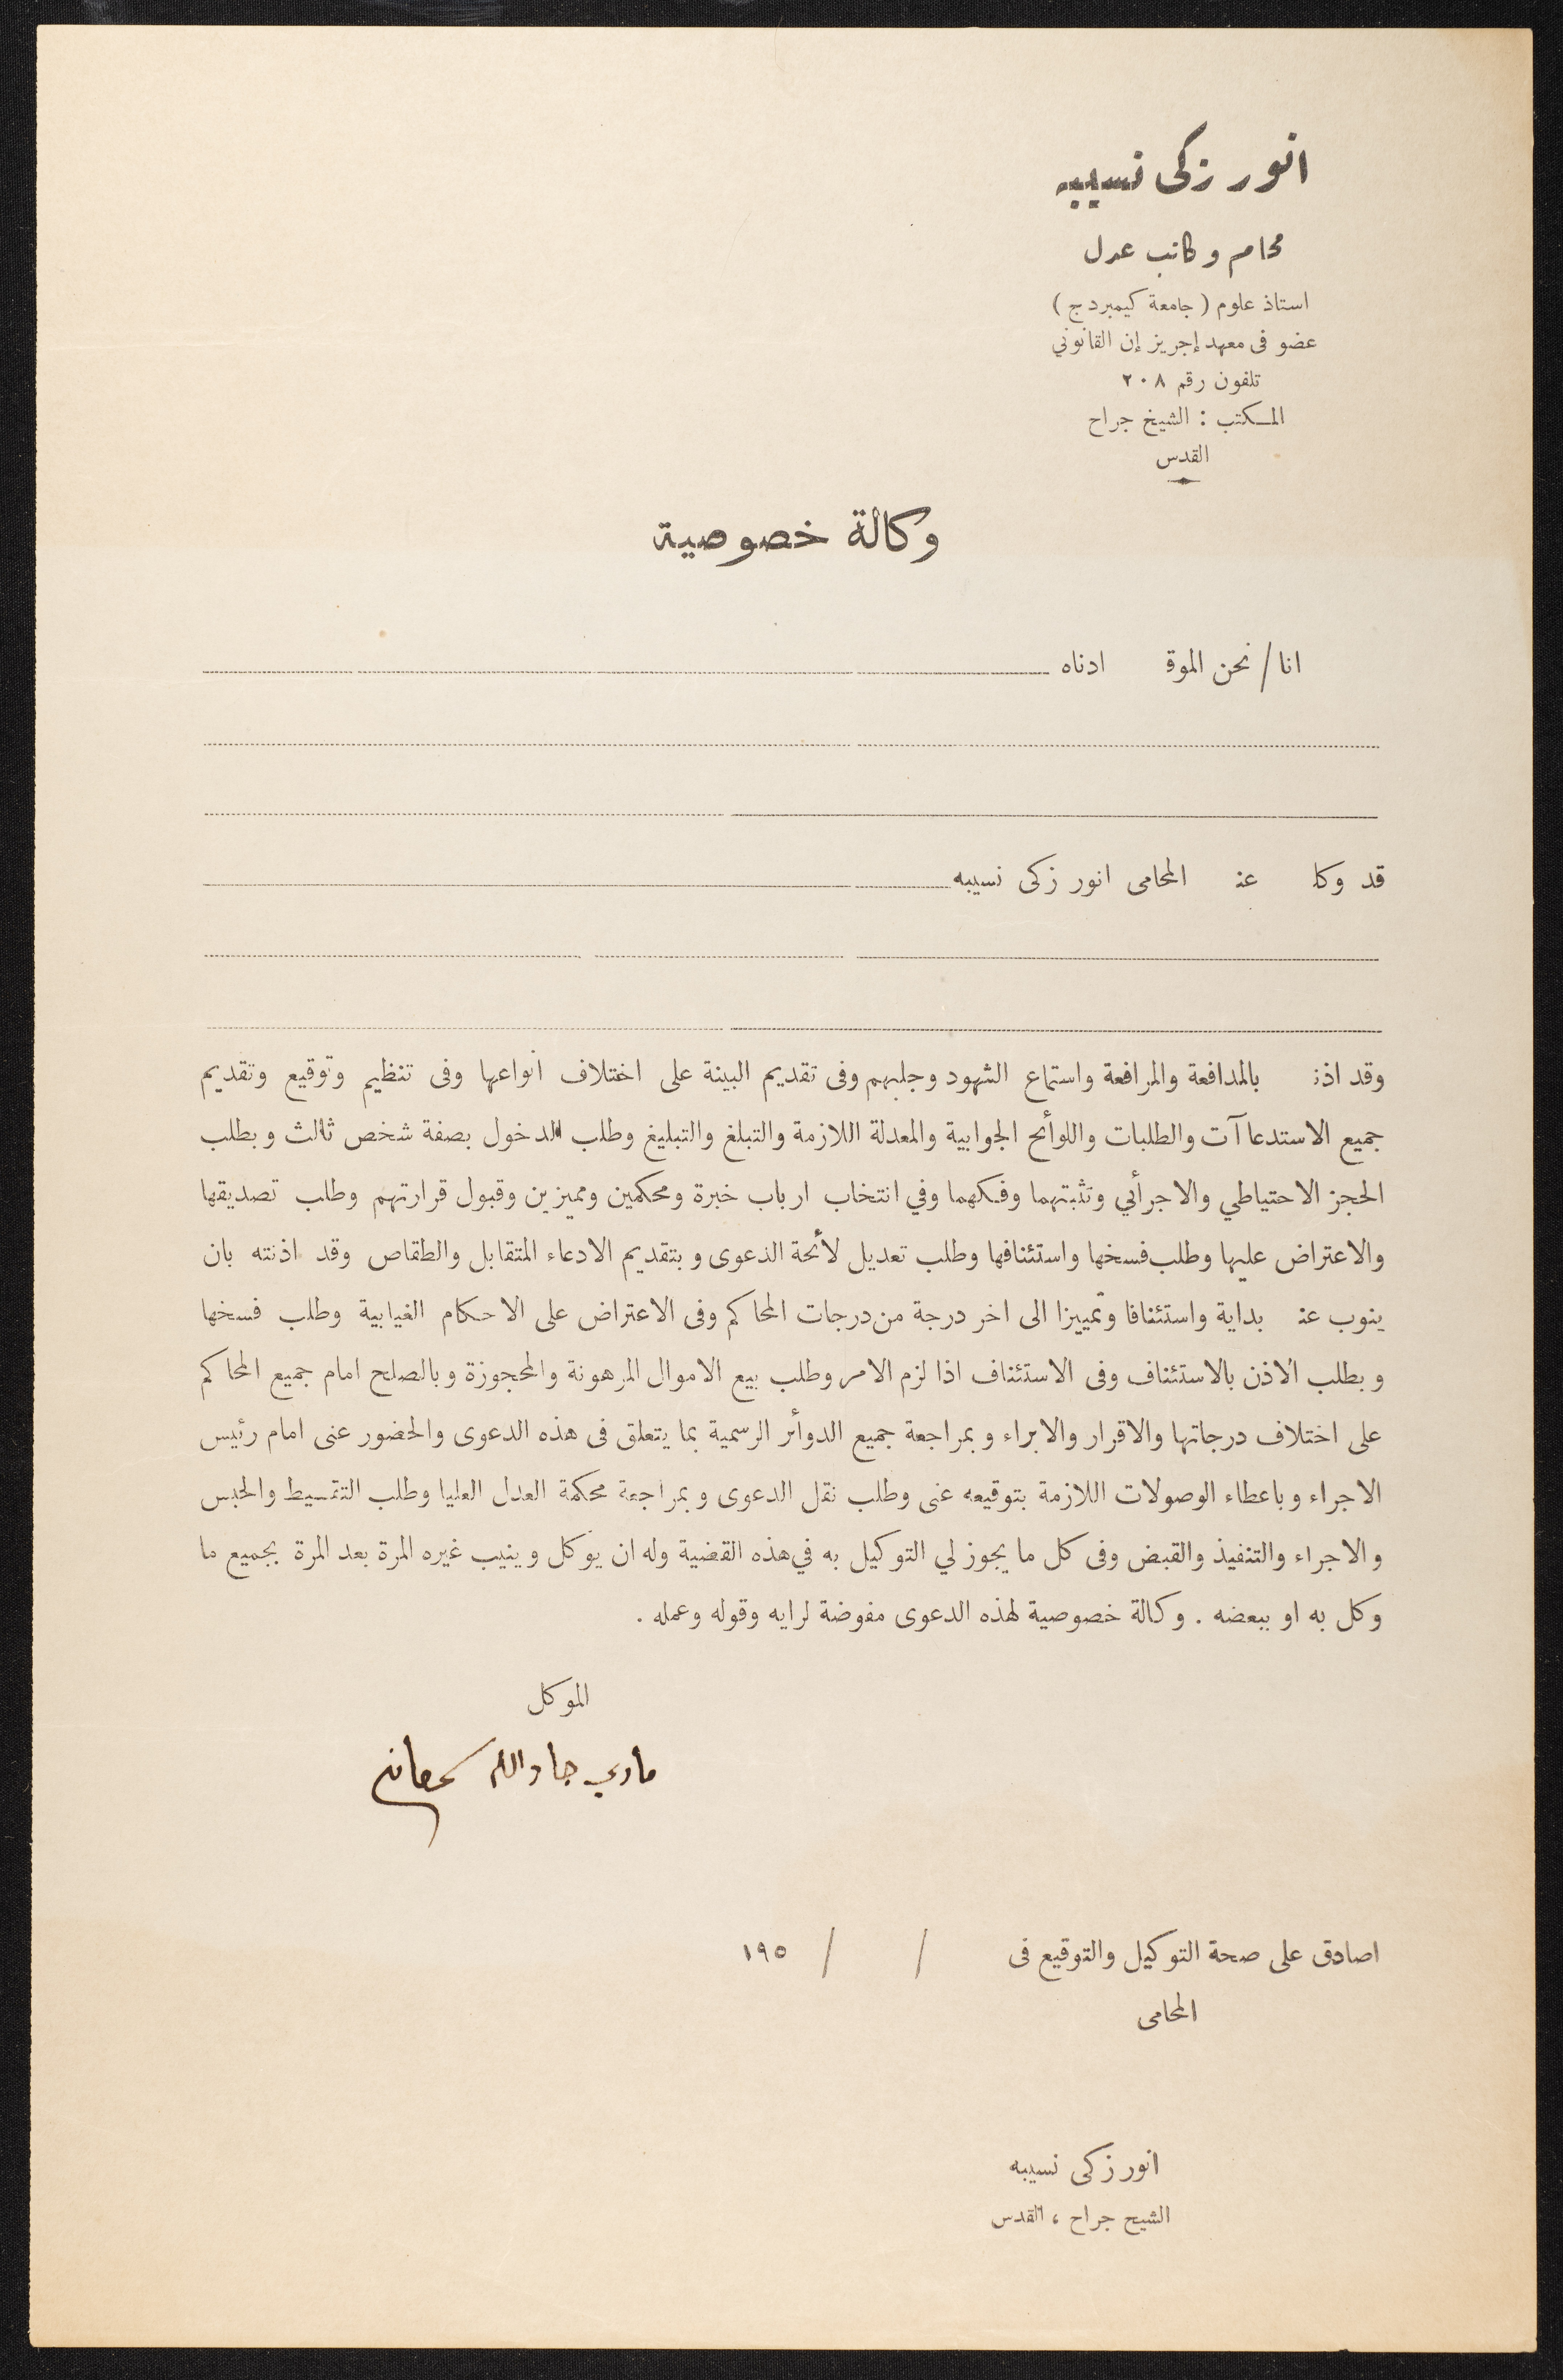 انور زكى نسيبه
محام وكاتب عدل
استاذ علوم ( جامعة كيمبردج )
عضو فى معهد إجريز إن القانوني
تلفون رقم ٢٠٨
المكتب : الشيخ جراح
القدس
وكالة خصوصية
انا / نحن الموقـ ادناه
قد وكلـ عنـ المحامى انور زكى نسيبه
وقد اذنـ بالمدافعة والمرافعة واستماع الشهود وجلبهم وفى تقديم البينة على اختلاف انواعها وفى تنظيم وتوقيع وتقديم
جميع الاستدعاآت والطلبات واللوأئح الجوابية والمعدلة اللازمة والتبلغ والتبليغ وطلب الدخول بصفة شخص ثالث وبطلب
الحجز الاحتياطي والاجرأئي وتثبتهما وفكهما وفي انتخاب ارباب خبرة ومحكمين ومميزين وقبول قرارتهم وطلب تصديقها
والاعتراض عليها وطلب فسخها واستئنافها وطلب تعديل لأئحة الدعوى وبتقديم الادعاء المتقابل والطقاص وقد اذنته بان
ينوب عنـ بداية واستئنافا وتمييزا الى اخر درجة من درجات المحاكم وفى الاعتراض على الاحكام الغيابية وطلب فسخها
وبطلب الاذن بالاستئناف وفى الاستئناف اذا لزم الامر وطلب بيع الاموال المرهونة والمحجوزة وبالصلح امام جميع المحاكم
على اختلاف درجاتها والاقرار والابراء وبمراجعة جميع الدوأئر الرسمية بما يتعلق فى هذه الدعوى والحضور عنى امام رئيس
الاجراء وباعطاء الوصولات اللازمة بتوقيعه عنى وطلب نقل الدعوى وبمراجعة محكمة العدل العليا وطلب التقسيط والحبس
والاجراء والتنفيذ والقبض وفى كل ما يجوز لي التوكيل به في هذه القضية وله ان يوكل وينيب غيره المرة بعد المرة بجميع ما
وكل به او ببعضه . وكالة خصوصية لهذه الدعوى مفوضة لرايه وقوله وعمله .
الموكل
ماري جاد الله
اصادق على صحة التوكيل والتوقيع فى / / ١٩٥
المحامى
انور زكى نسيبه
الشيح جراح ، القدس